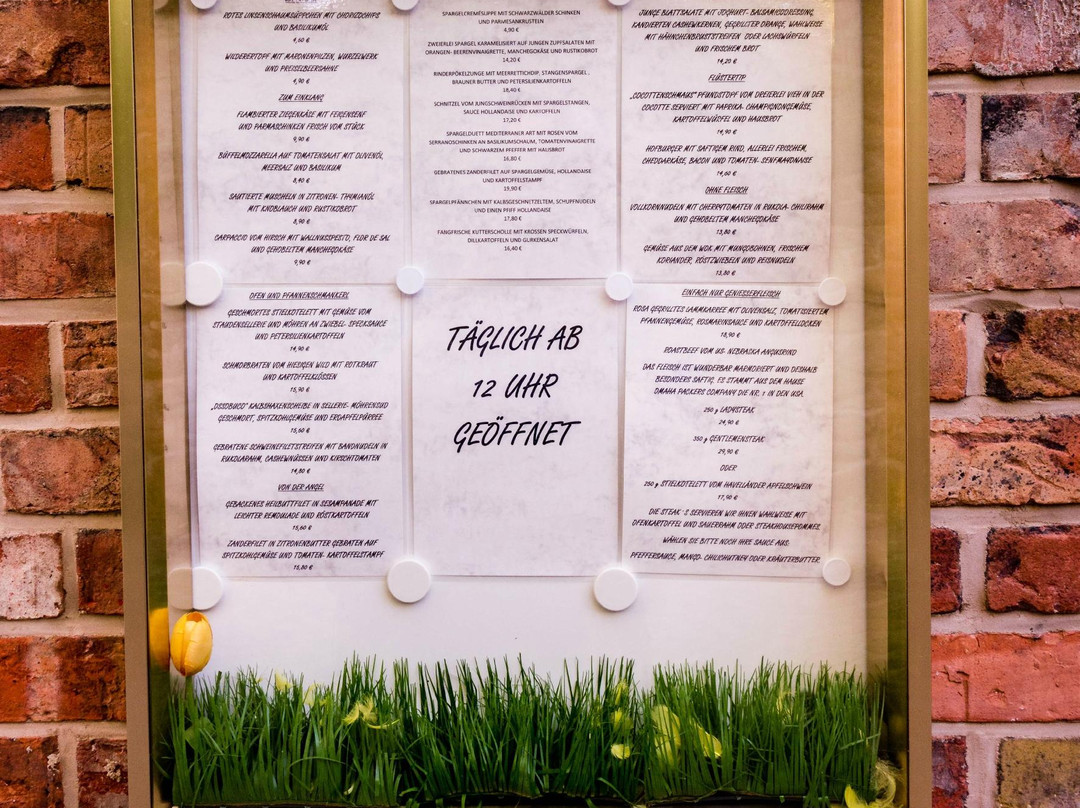 ROTES LINSENSCHAUMSÜPPCHEN MIT CHORIZOCHIPS
UND BASILIKUMÖL
4,60 €
WILDERERTOPF MIT MARONENPILZEN, WURZELWERK
UND PREISELBEERSAHNE
4,90 €
ZUM EINKLANG
FLAMBIERTER ZIEGENKÄSE MIT FEIGENSENF
UND PARMASCHINKEN FRISCH VOM STÜCK
9,90 €
BÜFFELMOZZARELLA AUF TOMATENSALAT MIT OLIVENÖL,
MEERSALZ UND BASILIKUM
8,40 €
SAUTIERTE MUSCHELN IN ZITRONEN- THYMIANÖL
MIT KNOBLAUCH UND RUSTIKOBROT
8,90 €
CARPACCIO VOM HIRSCH MIT WALLNUSSPESTO, FLOR DE SAL
UND GEHOBELTEM MANCHEGOKÄSE
9,90 €
SPARGELCREMESUPPE MIT SCHWARZWÄLDER SCHINKEN
UND PARMESANKRUSTELN
4,90 €
ZWEIERLEI SPARGEL KARAMELISIERT AUF JUNGEN ZUPFSALATEN MIT
ORANGEN- BEERENVINAIGRETTE, MANCHEGOKÄSE UND RUSTIKOBROT
14,20 €
RINDERPÖKELZUNGE MIT MEERRETTICHDIP, STANGENSPARGEL ,
BRAUNER BUTTER UND PETERSILIENKARTOFFELN
18,40 €
SCHNITZEL VOM JUNGSCHWEINRÜCKEN MIT SPARGELSTANGEN,
SAUCE HOLLANDAISE UND KARTOFFELN
17,20 €
SPARGELDUETT MEDITERRANER ART MIT ROSEN VOM
SERRANOSCHINKEN AN BASILIKUMSCHAUM, TOMATENVINAIGRETTE
UND SCHWARZEM PFEFFER MIT HAUSBROT
16,80 €
GEBRATENES ZANDERFILET AUF SPARGELGEMÜSE, HOLLANDAISE
UND KARTOFFELSTAMPF
19,90 €
SPARGELPFÄNNCHEN MIT KALBSGESCHNETZELTEM, SCHUPFNUDELN
UND EINEN PFIFF HOLLANDAISE
17,80 €
FANGFRISCHE KUTTERSCHOLLE MIT KROSSEN SPECKWÜRFELN,
DILLKARTOFFELN UND GURKENSALAT
16,40 €
JUNGE BLATTSALATE MIT JOGHURT- BALSAMICODRESSING,
KANDIERTEN CASHEWKERNEN, GEGRILLTER ORANGE, WAHLWEISE
MIT HÄHNCHENBRUSTSTREIFEN ODER LACHSWÜRFELN
UND FRISCHEM BROT
14,20 €
FLÜSTERTIP
„COCOTTENSCHMAUS" PFUNDSTOPF VOM DREIERLEI VIEH IN DER
COCOTTE SERVIERT MIT PAPRIKA- CHAMPIGNONGEMÜSE,
KARTOFFELWÜRFEL UND HAUSBROT
14,90 €
HOFBURGER MIT SAFTIGEM RIND, ALLERLEI FRISCHEM,
CHEDDARKÄSE, BACON UND TOMATEN- SENFMAYONAISE
14,60 €
OHNE FLEISCH
VOLLKORNNUDELN MIT CHERRYTOMATEN IN RUKOLA- CHILIRAHM
UND GEHOBELTEM MANCHEGOKÄSE
13,80 €
GEMÜSE AUS DEM WOK MIT MUNGOBOHNEN, FRISCHEM
KORIANDER, RÖSTZWIEBELN UND REISNUDELN
13,80 €
OFEN UND PFANNENSCHMANKERL
GESCHMORTES STIELKOTELETT MIT GEMÜSE VOM
STAUDENSELLERIE UND MÖHREN AN ZWIEBEL- SPECKSAUCE
UND PETERSILIENKARTOFFELN
14,90 €
SCHMORBRATEN VOM HIESIGEN WILD MIT ROTKRAUT
UND KARTOFFELKLÖSSEN
15,90 €
„OSSOBUCO" KALBSHAXENSCHEIBE IN SELLERIE- MÖHRENSUD
GESCHMORT, SPITZKOHLGEMÜSE UND ERDAPFELPÜRREE
15,60 €
GEBRATENE SCHWEINEFILETSTREIFEN MIT BANDNUDELN IN
RUKOLARAHM, CASHEWNÜSSEN UND KIRSCHTOMATEN
14,80 €
VON DER ANGEL
GEBACKENES HEILBUTTFILET IN SESAMPANADE MIT
LEICHTER REMOULADE UND RÖSTKARTOFFELN
15,60 €
ZANDERFILET IN ZITRONENBUTTER GEBRATEN AUF
SPITZKOHLGEMÜSE UND TOMATEN- KARTOFFELSTAMPF
15,80 €
TÄGLICH AB
12 UHR
GEÖFFNET
EINFACH NUR GENIESSERFLEISCH
ROSA GEGRILLTES LAMMKARREE MIT OLIVENSALZ, TOMATISIERTEM
PFANNENGEMÜSE, ROSMARINSAUCE UND KARTOFFELLOCKEN
18,90 €
ROASTBEEF VOM US- NEBRASKA ANGUSRIND
DAS FLEISCH IST WUNDERBAR MARMORIERT UND DESHALB
BESONDERS SAFTIG. ES STAMMT AUS DEM HAUSE
OMAHA PACKERS COMPANY DIE NR. 1 IN DEN USA.
250 g LADYSTEAK
24,90 €
350 g GENTLEMENSTEAK
29,90 €
ODER
250 g STIELKOTELETT VOM HAVELLÄNDER APFELSCHWEIN
17,90 €
DIE STEAK´S SERVIEREN WIR IHNEN WAHLWEISE MIT
OFENKARTOFFEL UND SAUERRAHM ODER STEAKHOUSEPOMMES.
WÄHLEN SIE BITTE NOCH IHRE SAUCE AUS:
PFEFFERSAUCE, MANGO- CHILICHUTNEY ODER KRÄUTERBUTTER